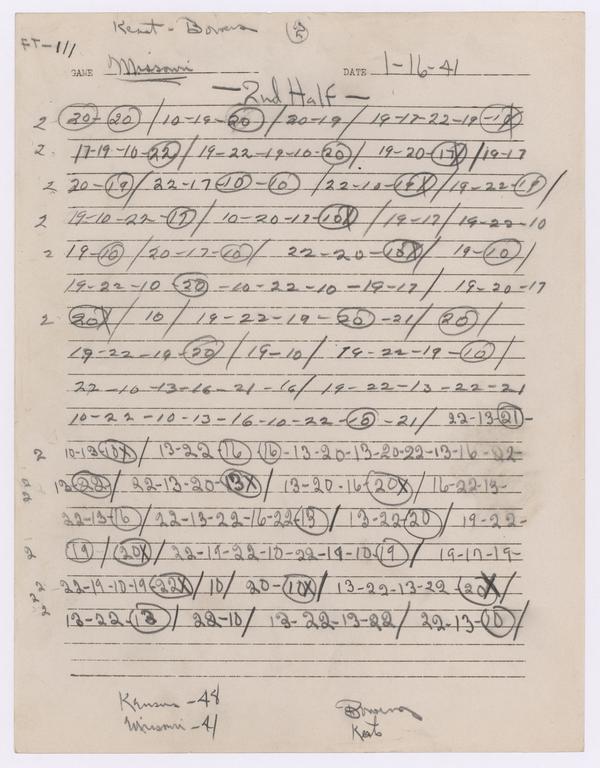 Kent - Bowers
FT-111
GAME Missouri DATE 1-16-41
- 2nd Half -
2 20-20 / 10-19-20 / 20-19 / 19-17-22-19-
2 17-19-10-22 / 19-22-19-10-20 / 19-20-17X / 19-17
2 20-19 / 22-17-10-10 / 22-10-19X / 19-22-19 /
2 19-10-22-17 / 10-20-17-10X / 19-17 / 19-22-10
2 19-10 / 20-17-10 / 22-20-10X / 19-10 /
19-22-10-20-10-22-10-19-17 / 19-20-17
2 20X / 10 / 19-22-19-20-21 / 20 /
19-22-19-20 / 19-10 / 19-22-19-10 /
22-10-13-16-21-16 / 19-22-13-22-21
10-22-10-13-16-10-22-10-21 / 22-13-21-
2 10-13-10X / 13-22-16 16-13-20-13-20-22-13-16-22-
2 2 13-22 / 22-13-20-13X / 13-20-16-20X / 16-22-13-
22-13-16 / 22-13-22-16-22-13 / 13-22-20 / 19-22-
2 19 / 20X / 22-19-22-10-22-19-10-19 / 19-17-19-
2 2 22-19-10-19-22X / 10 / 20-10X / 13-22-13-22-20X /
2 13-22-13 / 22-10 / 13-22-13-22 / 22-13-10 /
Kansas - 48
Missouri - 41
Bowers
Kent